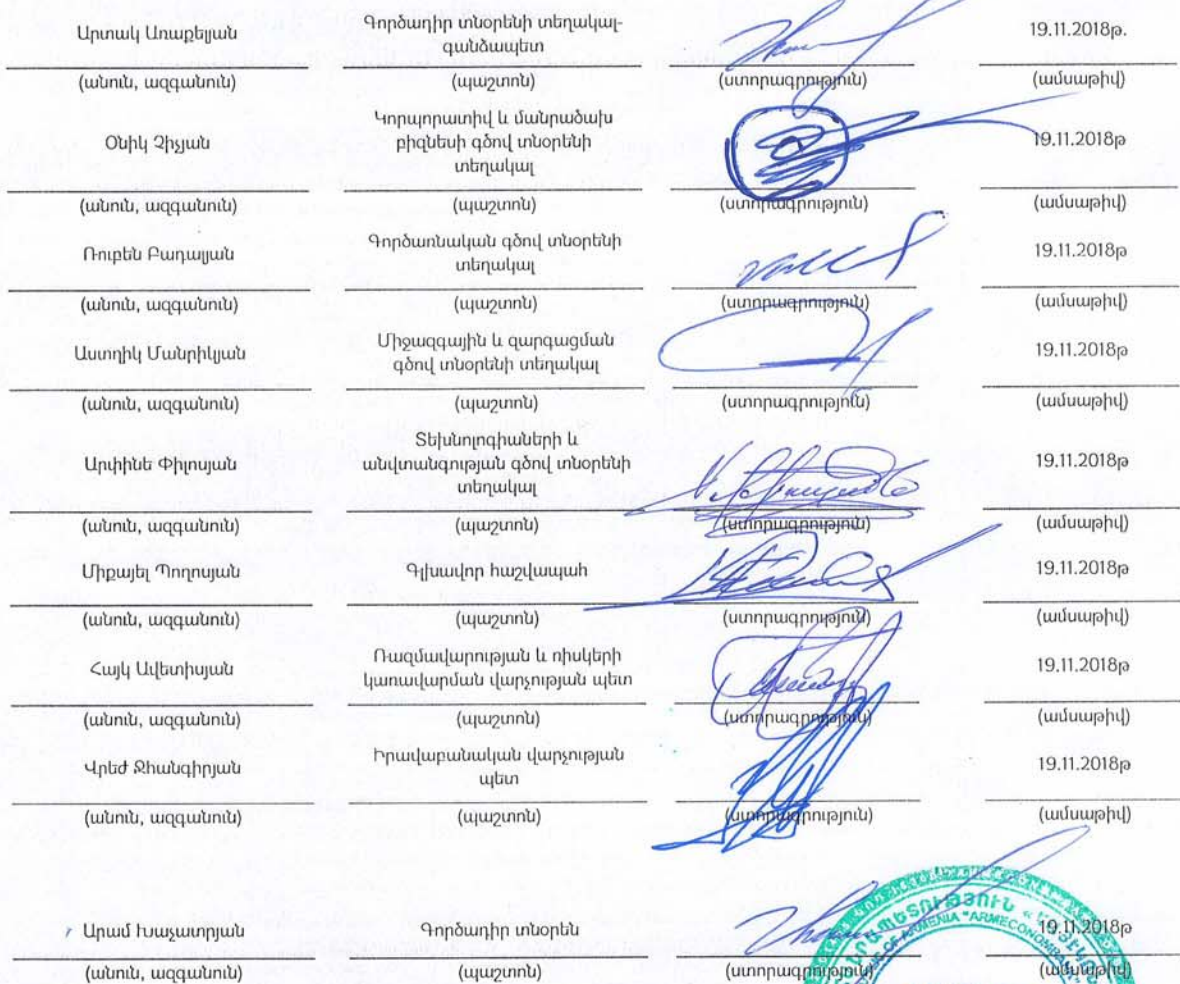 Արտակ Առաքելյան
Գործադիր տնօրենի տեղակալ-
գանձապետ
19.11.2018թ.
(անուն, ազգանուն) (պաշտոն) (ստորագրություն) (ամսաթիվ)
Օնիկ Չիչյան
Կորպորատիվ և մանրածախ
բիզնեսի գծով տնօրենի
տեղակալ
19.11.2018թ
(անուն, ազգանուն) (պաշտոն) (ստորագրություն) (ամսաթիվ)
Ռուբեն Բադալյան
Գործառնական գծով տնօրենի
տեղակալ
19.11.2018թ
(անուն, ազգանուն) (պաշտոն) (ստորագրություն) (ամսաթիվ)
Աստղիկ Մանրիկյան
Միջազգային և զարգացման
գծով տնօրենի տեղակալ
19.11.2018թ
(անուն, ազգանուն) (պաշտոն) (ստորագրություն) (ամսաթիվ)
Արփինե Փիլոսյան
Տեխնոլոգիաների և
անվտանգության գծով տնօրենի
տեղակալ
19.11.2018թ
(անուն, ազգանուն) (պաշտոն) (ստորագրություն) (ամսաթիվ)
Միքայել Պողոսյան Գլխավոր հաշվապահ 19.11.2018թ
(անուն, ազգանուն) (պաշտոն) (ստորագրություն) (ամսաթիվ)
Հայկ Ավետիսյան
Ռազմավարության և ռիսկերի
կառավարման վարչության պետ
19.11.2018թ
(անուն, ազգանուն) (պաշտոն) (ստորագրություն) (ամսաթիվ)
Վրեժ Ջհանգիրյան
Իրավաբանական վարչության
պետ
19.11.2018թ
(անուն, ազգանուն) (պաշտոն) (ստորագրություն) (ամսաթիվ)
Արամ Խաչատրյան Գործադիր տնօրեն 19.11.2018թ
(անուն, ազգանուն) (պաշտոն) (ստորագրություն) (ամսաթիվ)
OF ARMENIA "ARMECONOM